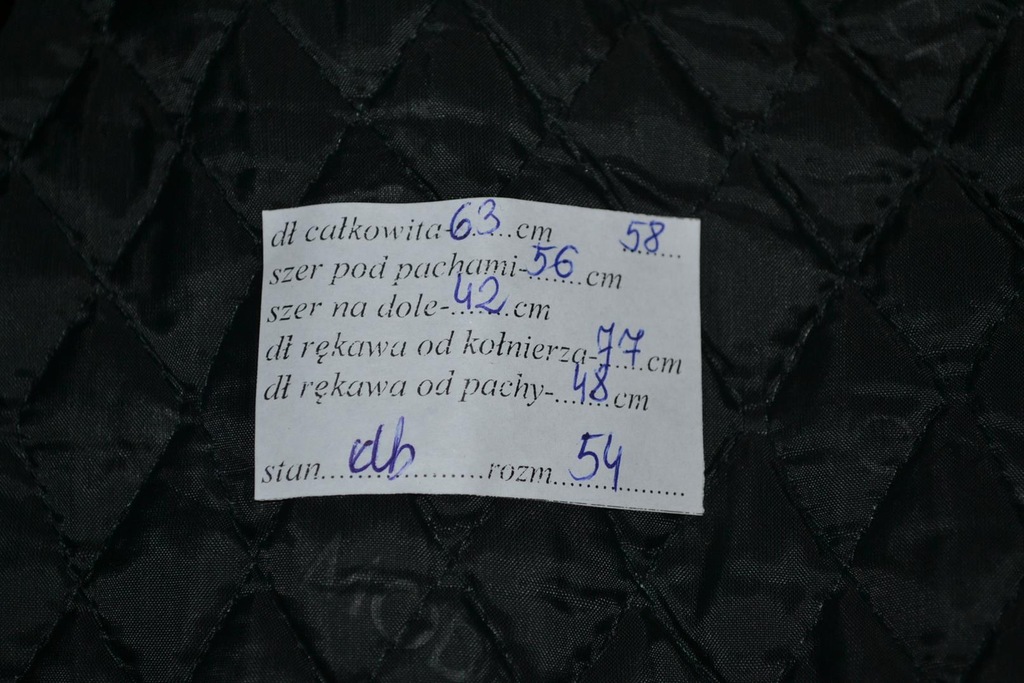 dł całkowita-63...cm 58
szer pod pachami-56...cm
szer na dole-.42.cm
dł rękawa od kołnierza-77...cm
dł rękawa od pachy-...48cm
stan...db...rozm...54...